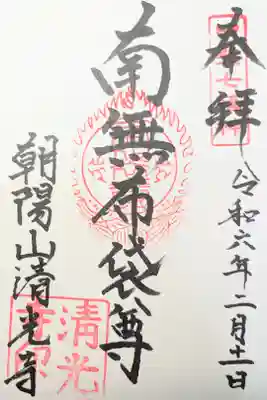 奉拝
令和六年二月十一日
南無布袋尊
朝陽山清光寺
清光
寺印